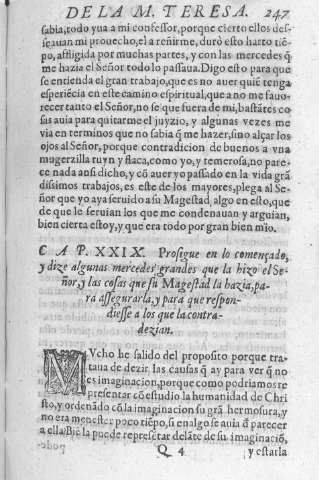 DE LA M. TERESA. 247
sabia, todo yua a mi confessor, porque cierto ellos des-
seauan mi prouecho, el a reñirme, duró esto harto tiẽ-
po, afligida por muchas partes, y con las mercedes q̃
me hazia el Señor todo lo passaua. Digo esto para que
se entienda el gran trabajo, que es no auer quiẽ tenga
esperiẽcia en este camino espiritual, que a no me fauo-
recer tanto el Señor, no se que fuera de mi, bastãtes co
sas auia para quitarme el juyzio, y algunas vezes me
via en terminos que no sabia q̃ me hazer, sino alçar los
ojos al Señor, porque contradicion de buenos a vna
mugerzilla ruyn y flaca, como yo, y temerosa, no pare-
ce nada ansi dicho, y cõ auer yo passado en la vida grã
dissimos trabajos, es este de los mayores, plega al Se-
ñor que yo aya seruido a su Magestad algo en esto, que
de que le seruian los que me condenauan y arguian,
bien cierta estoy, y que era todo por gran bien mio.
CAP. XXIX. Prosigue en lo començado,
y dize algunas mercedes grandes que la hizo el Se-
ñor, y las cosas que su Magestad la hazia, pa-
ra assegurarla, y para que respon-
diesse a los que la contra-
dezian.
MVcho he salido del proposito porque tra-
taua de dezir las causas q̃ ay para ver q̃ no
es imaginacion, porque como podriamos re
presentar cõ estudio la humanidad de Chri
sto, y ordenãdo cõ la imaginacion su grã hermosura, y
no era menester poco tiẽpo, si en algo se auia d̃ parecer
a ella? Biẽ la puede represẽtar delãte de su imaginaciõ,
Q 4 y estarla